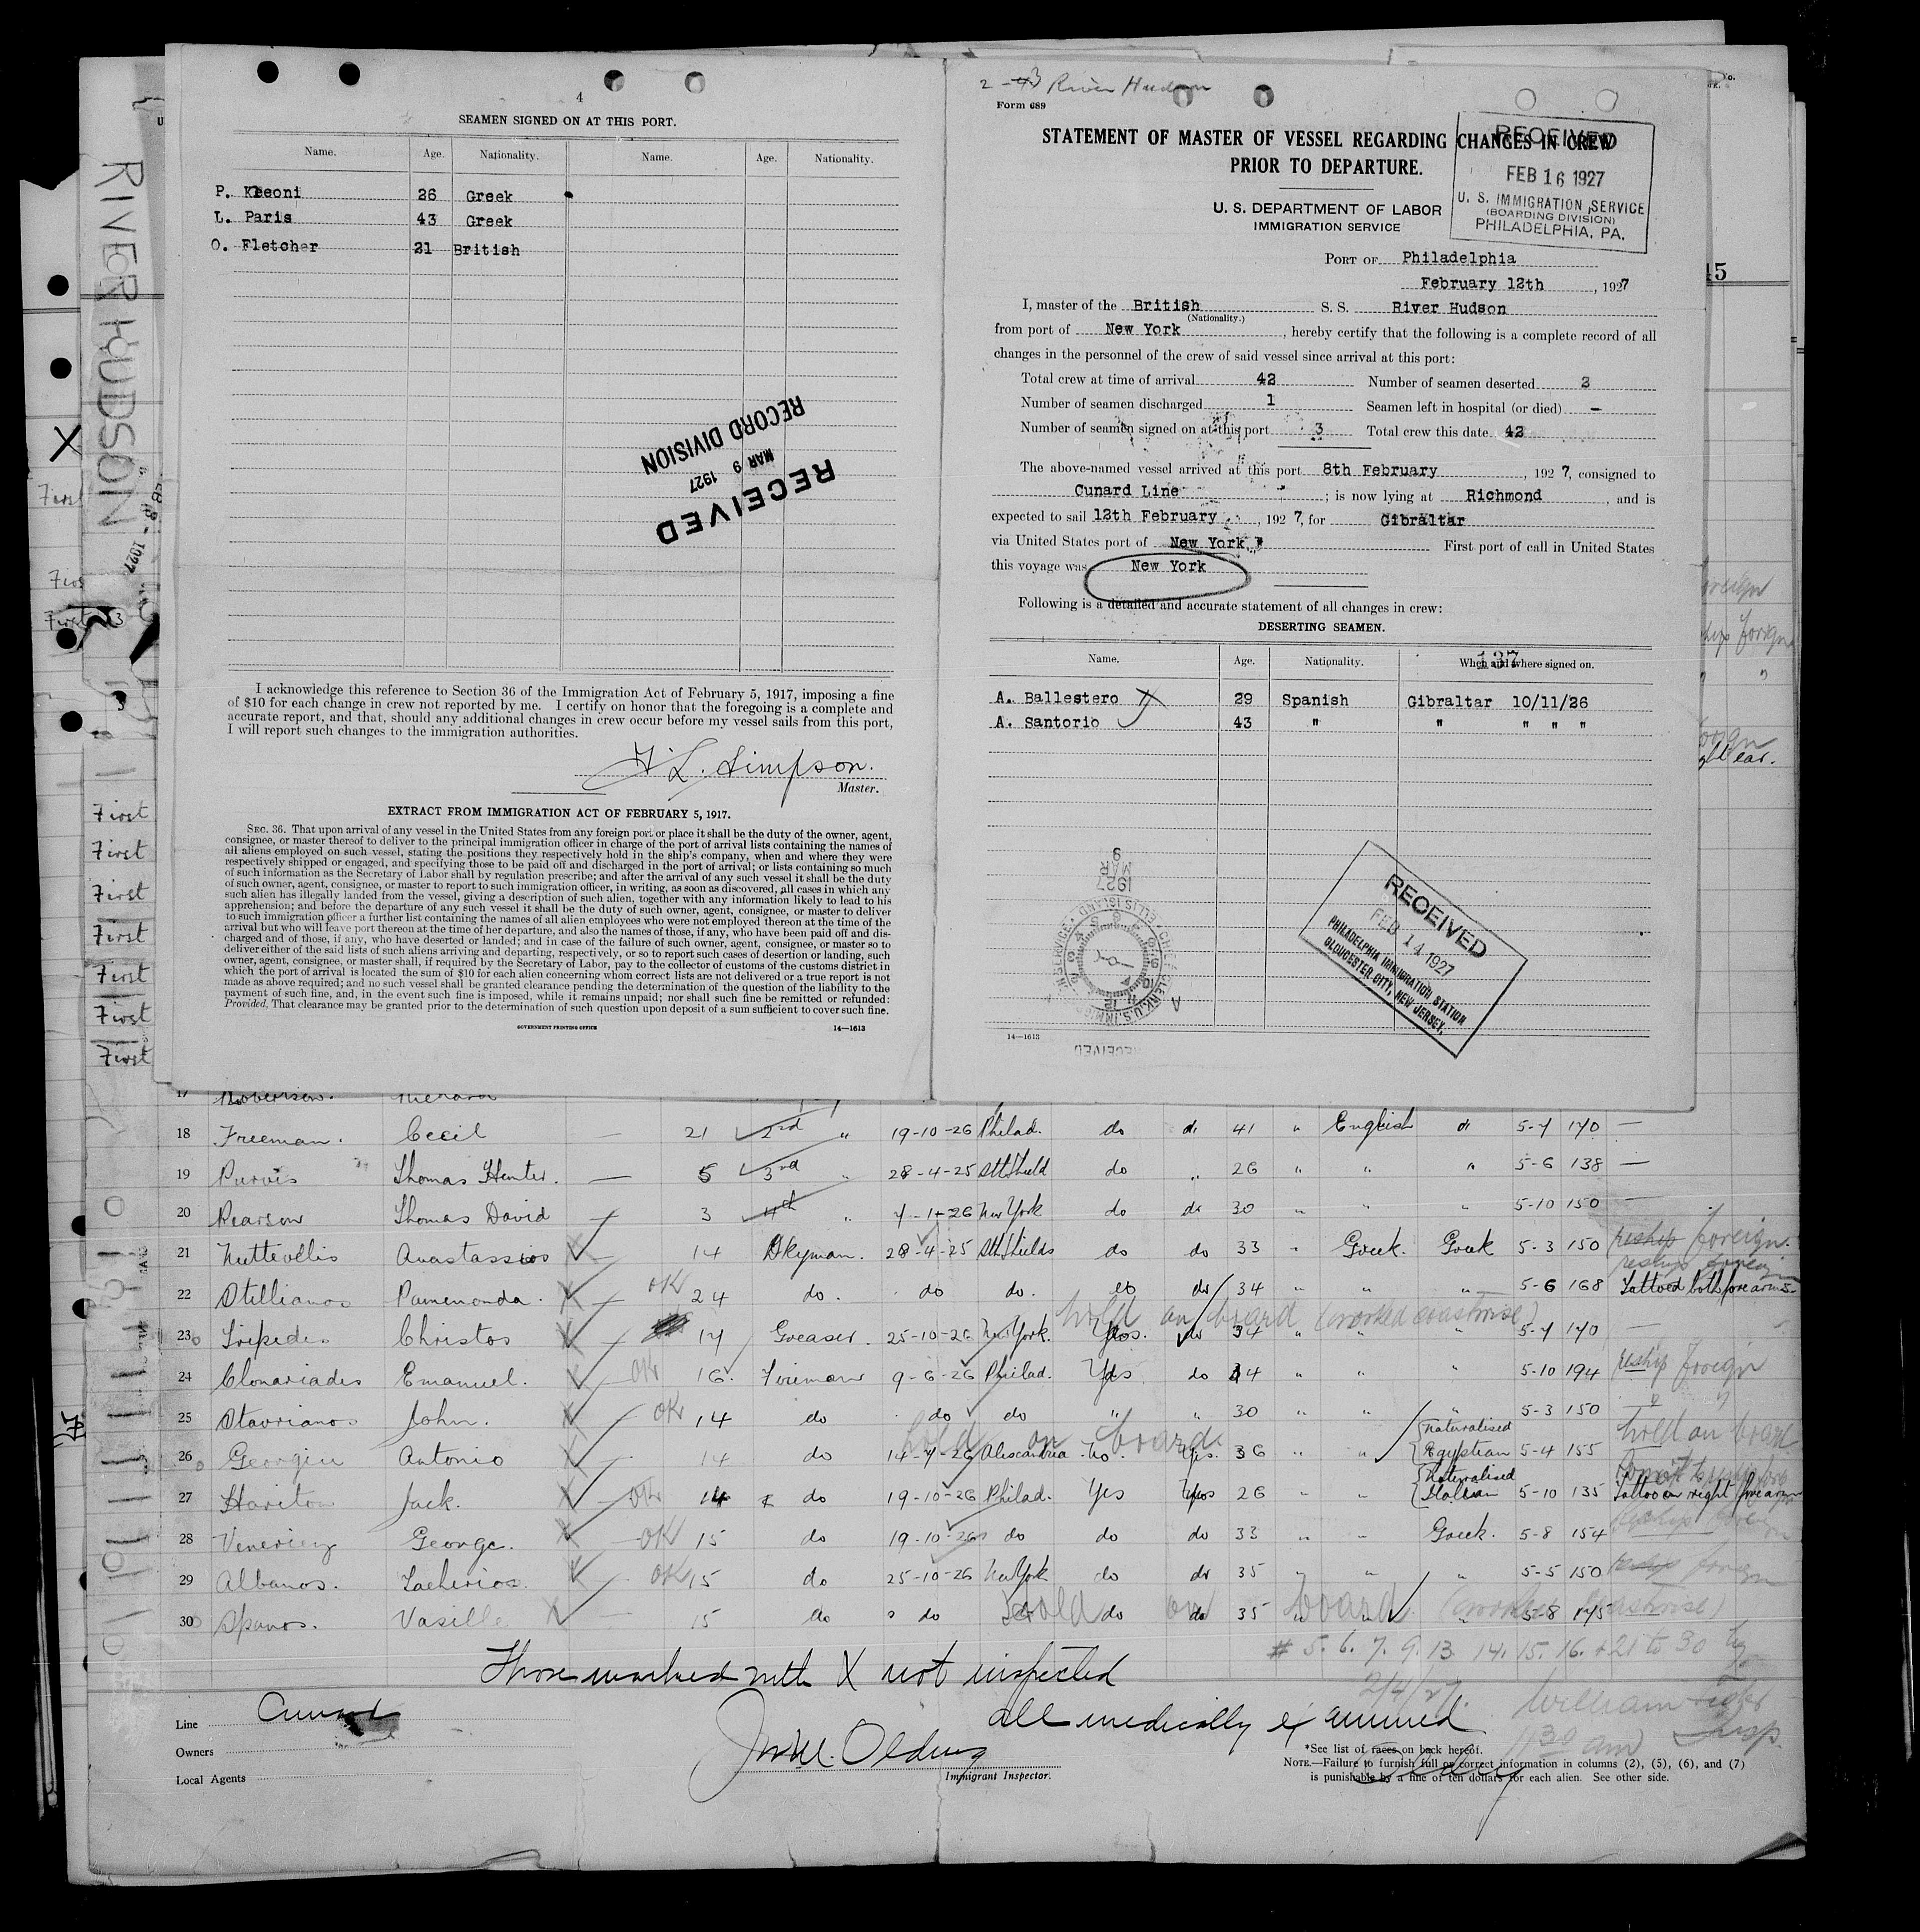 4
SEAMEN SIGNED ON AT THIS PORT.
Name. Age. Nationality. Name. Age. Nationality.
P. Kleoni 26 Greek
L. Paris 43 Greek
O. Fletcher 21 British
RECEIVED
MAR 9 1927
RECORD DIVISION
I acknowledge this reference to Section 36 of the Immigration Act of February 5, 1917, imposing a fine
of $10 for each change in crew not reported by me. I certify on honor that the foregoing is a complete and
accurate report, and that, should any additional changes in crew occur before my vessel sails from this port,
I will report such changes to the immigration authorities.
L. Simpson.
Master.
EXTRACT FROM IMMIGRATION ACT OF FEBRUARY 5, 1917.
SEC. 36. That upon arrival of any vessel in the United States from any foreign port or place it shall be the duty of the owner, agent,
consignee, or master thereof to deliver to the principal immigration officer in charge of the port of arrival lists containing the names of
all aliens employed on such vessel, stating the positions they respectively hold in the ship's company, when and where they were
respectively shipped or engaged, and specifying those to be paid off and discharged in the port of arrival; or lists containing so much
of such information as the Secretary of Labor shall by regulation prescribe; and after the arrival of any such vessel it shall be the duty
of such owner, agent, consignee, or master to report to such immigration officer, in writing, as soon as discovered, all cases in which any
such alien has illegally landed from the vessel, giving a description of such alien, together with any information likely to lead to his
apprehension; and before the departure of any such vessel it shall be the duty of such owner, agent, consignee, or master to deliver
to such immigration officer a further list containing the names of all alien employees who were not employed thereon at the time of the
arrival but who will leave port thereon at the time of her departure, and also the names of those, if any, who have been paid off and dis-
charged and of those, if any, who have deserted or landed; and in case of the failure of such owner, agent, consignee, or master so to
deliver either of the said lists of such aliens arriving and departing, respectively, or so to report such cases of desertion or landing, such
owner, agent, consignee, or master shall, if required by the Secretary of Labor, pay to the collector of customs of the customs district in
which the port of arrival is located the sum of $10 for each alien concerning whom correct lists are not delivered or a true report is not
made as above required; and no such vessel shall be granted clearance pending the determination of the question of the liability to the
payment of such fine, and, in the event such fine is imposed, while it remains unpaid; nor shall such fine be remitted or refunded:
Provided, That clearance may be granted prior to the determination of such question upon deposit of a sum sufficient to cover such fine.
GOVERNMENT PRINTING OFFICE 14—1613
River Hudson
Form 689
STATEMENT OF MASTER OF VESSEL REGARDING CHANGES IN CREW
PRIOR TO DEPARTURE.
RECEIVED
FEB 16 1927
U. S. IMMIGRATION SERVICE
(BOARDING DIVISION)
PHILADELPHIA, PA.
U. S. DEPARTMENT OF LABOR
IMMIGRATION SERVICE
PORT OF Philadelphia
February 12th, 1927
I, master of the British S. S. River Hudson
(Nationality.)
from port of New York, hereby certify that the following is a complete record of all
changes in the personnel of the crew of said vessel since arrival at this port:
Total crew at time of arrival 42 Number of seamen deserted 2
Number of seamen discharged 1 Seamen left in hospital (or died) -
Number of seamen signed on at this port 3 Total crew this date 42
The above-named vessel arrived at this port 8th February, 1927, consigned to
Cunard Line; is now lying at Richmond, and is
expected to sail 12th February, 1927, for Gibraltar
via United States port of New York First port of call in United States
this voyage was New York
Following is a detailed and accurate statement of all changes in crew:
DESERTING SEAMEN.
137
Name. Age. Nationality. When and where signed on.
A. Ballestero 29 Spanish Gibraltar 10/11/26
A. Santorio 43 " " " " "
RECEIVED
FEB 14 1927
PHILADELPHIA IMMIGRATION STATION
GLOUCESTER CITY, NEW JERSEY.
1927
MAR
9
14—1613
RECEIVED
RIVER HUDSON
First
First
First
First
First
First
First
First
First
45
17 Robertson. Richard
18 Freeman. Cecil — 21 2nd " 19-10-26 Philad. do do 41 " English do 5-7 170 —
19 Purvis Thomas Hunter. — 5 3rd " 28-4-25 Sth Shield do " 26 " " " 5-6 138 —
20 Pearson Thomas David 3 4th " New York do do 30 " " " 5-10 150 —
21 Anastassios X 14 Dkyman. 28-4-25 Sth Shields do do 33 " Greek. Greek 5-3 150 reship foreign.
22 Stillianos Pamenonda. X OK 24 do. do do. do do 34 " " " 5-6 168 Tattoed both forearms
hold on board (worked coastwise)
23 Christos X 14 Greaser. 25-10-26 New York. Yes. do 34 " " " 5-7 170 —
24 Clonariades Emanuel. X OK 16. Fireman 9-6-26 Philad. Yes do 34 " " " 5-10 194 reship foreign
25 Stavrianos John. X OK 14 do do do " " 30 " " " 5-3 150
hold on board.
26 Antonio X 14 do 14-7-26 Alexandria no. Yes. 36 " " {Naturalised Egyptian 5-4 155 hold on board
27 Hariton Jack. X OK 14 do 19-10-26 Philad. Yes Yes 26 " " {Naturalised Italian 5-10 135 Tattoo on right forearm
28 George. X OK 15 do 19-10-26 do do do 33 " " Greek. 5-8 154
29 Albanos. X OK 15 do 25-10-26 New York do do 35 " " " 5-5 150 reship foreign
30 Spanos. Vasille X 15 do do do do do 35 " " " 5-8 175
hold on board
# 5. 6. 7. 9. 13. 14. 15. 16. + 21 to 30
Those marked with X not inspected
all medically examined
Line Cunard
Owners
Local Agents
Immigrant Inspector.
William
*See list of races on back hereof.
NOTE.—Failure to furnish full or correct information in columns (2), (5), (6), and (7)
is punishable by a fine of ten dollars for each alien. See other side.